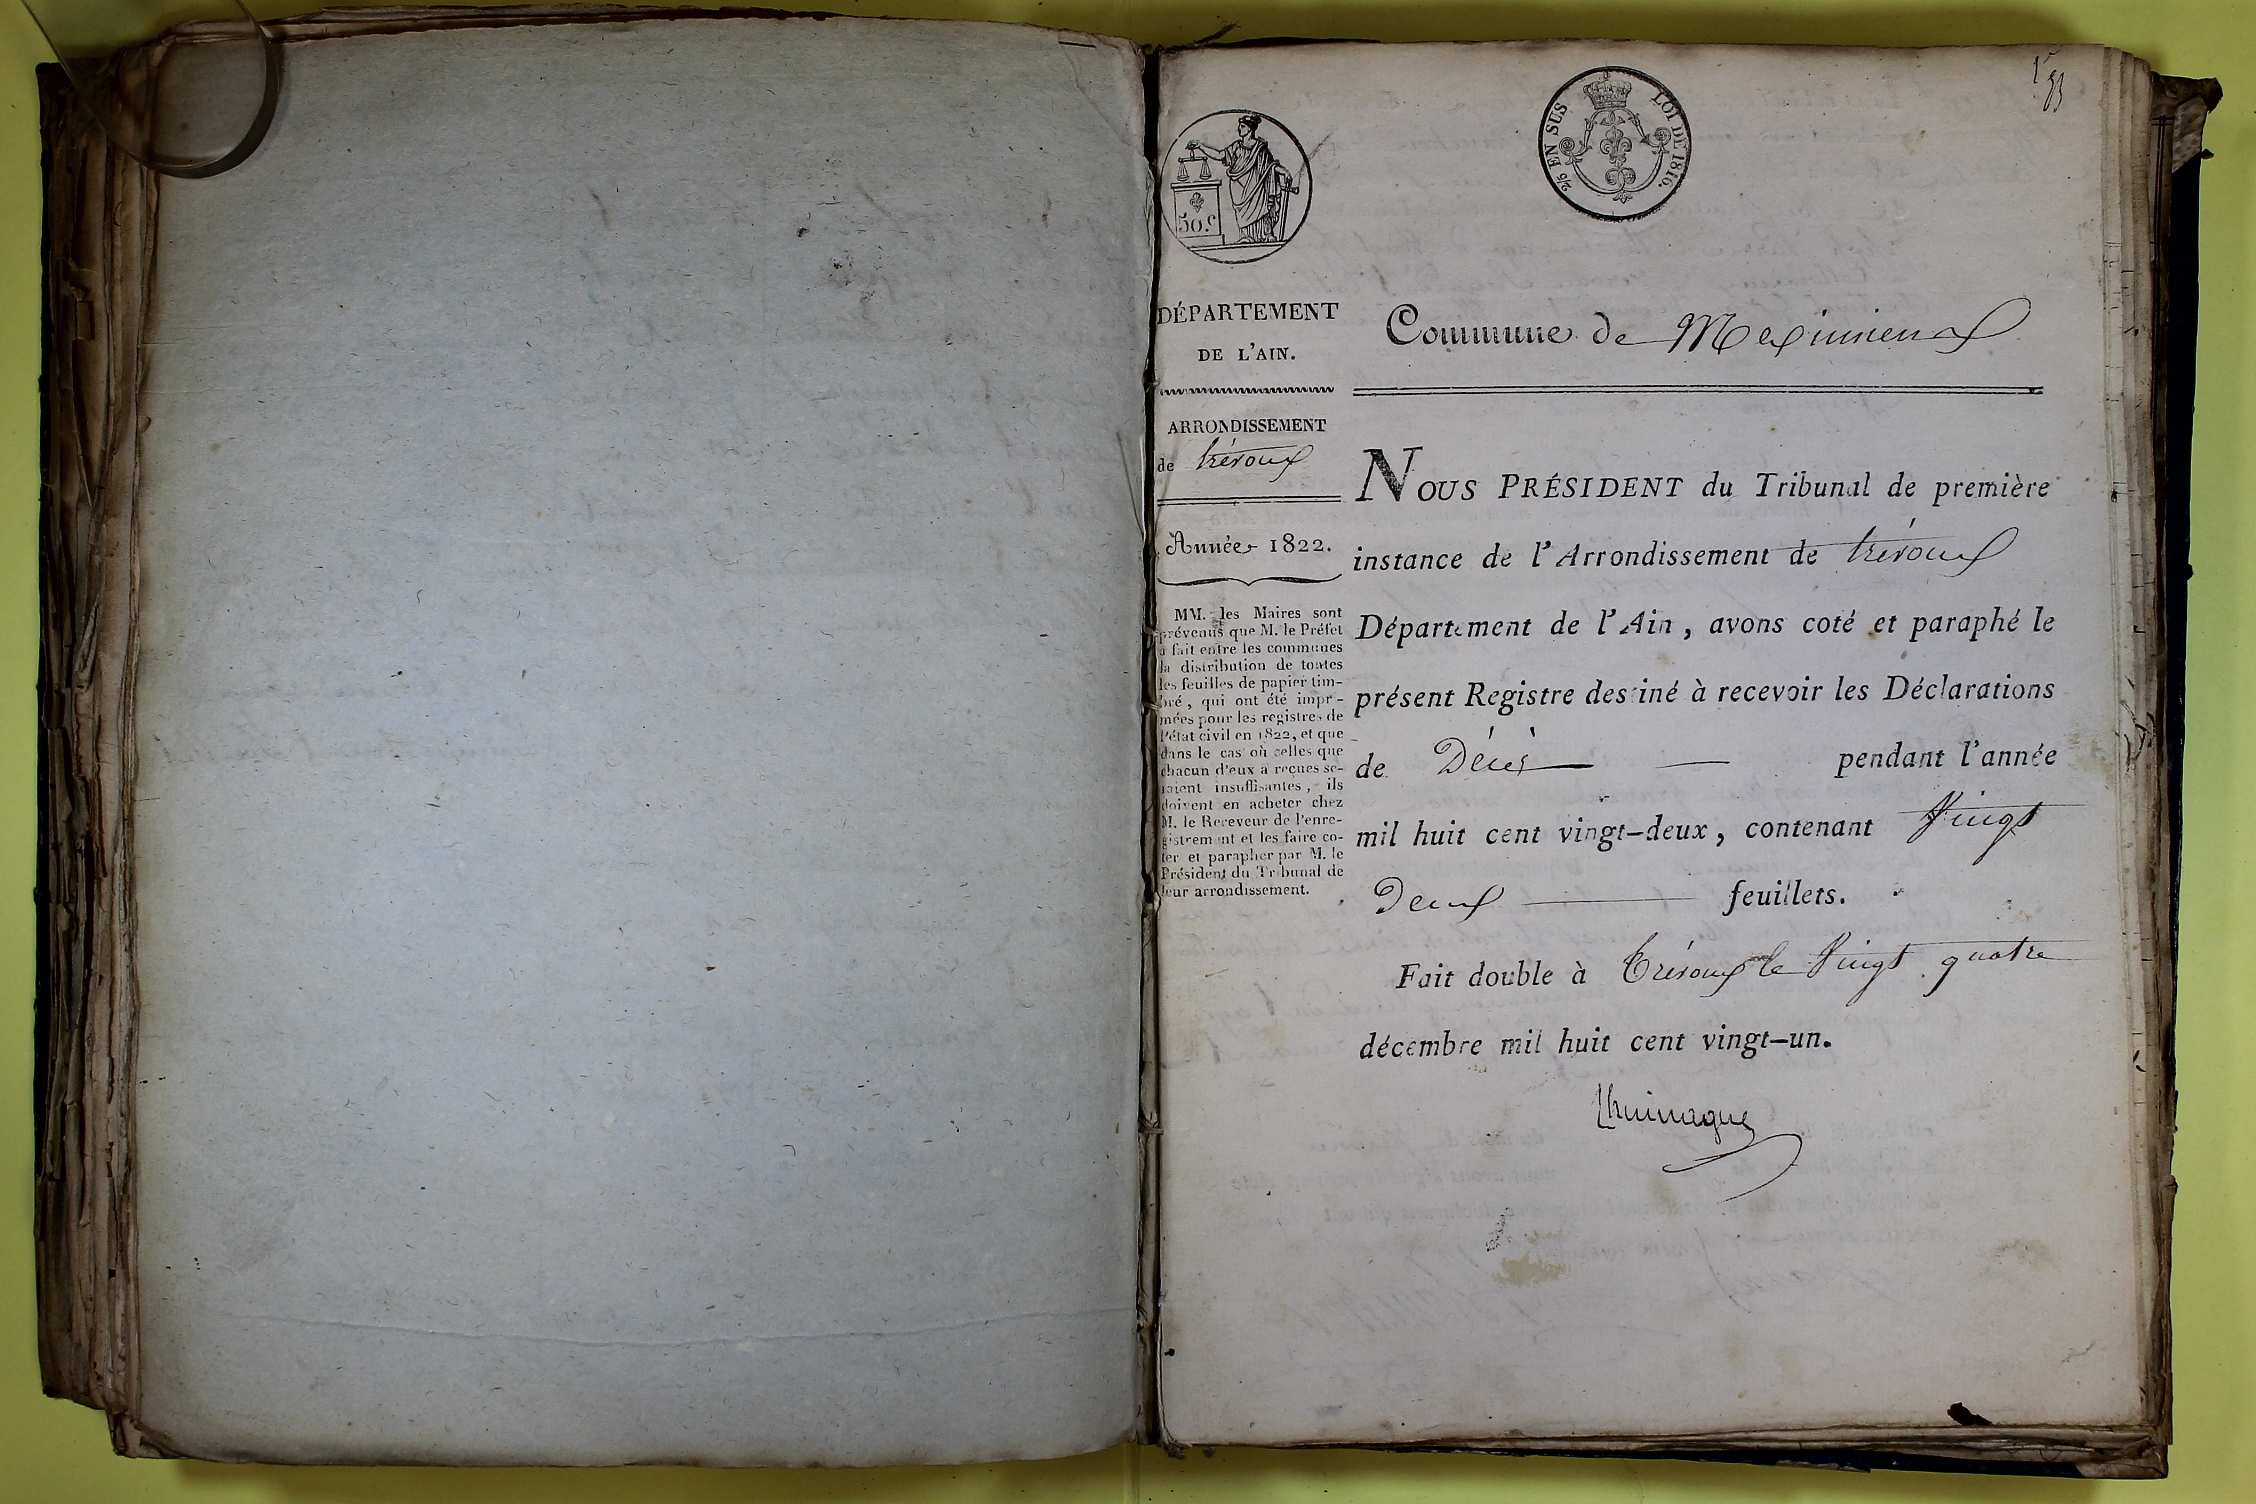 2/5 EN SUS LOI DE 1816.
50.C
DÉPARTEMENT
DE L'AIN.
ARRONDISSEMENT
de trévoux
Année 1822.
MM. les Maires sont
prévenus que M. le Préfet
a fait entre les communes
la distribution de toutes
les feuilles de papier tim-
bré, qui ont été impri-
mées pour les registres de
l'état civil en 1822, et que
dans le cas où celles que
chacun d'eux a reçues se-
raient insuffisantes, ils
doivent en acheter chez
M. le Receveur de l'enre-
gistrement et les faire co-
ter et parapher par M. le
Président du Tribunal de
leur arrondissement.
Commune de Meximieux
NOUS PRÉSIDENT du Tribunal de première
instance de l'Arrondissement de trévoux
Département de l'Ain, avons coté et paraphé le
présent Registre destiné à recevoir les Déclarations
de Décès pendant l'année
mil huit cent vingt-deux, contenant Vingt
Deux feuillets.
Fait double à Trévoux le Vingt quatre
décembre mil huit cent vingt-un.